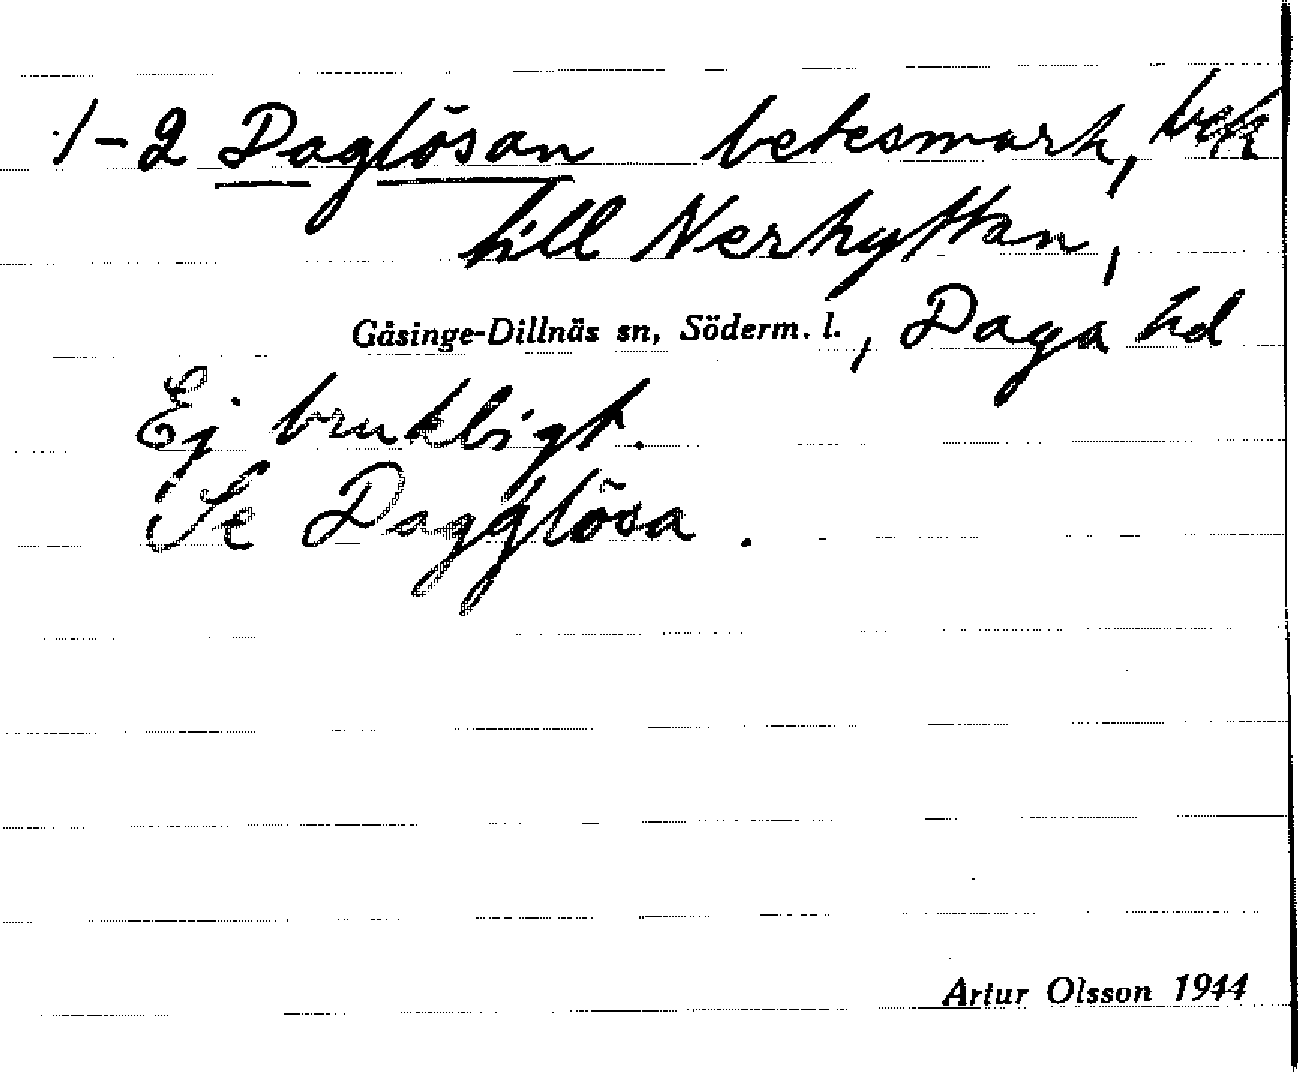 1-2 Daglösan betesmark,
till Nerhyttan,
Gåsinge-Dillnäs sn, Söderm. l., Daga hd
Ej brukligt.
Se Dagglösa.
Artur Olsson 1944